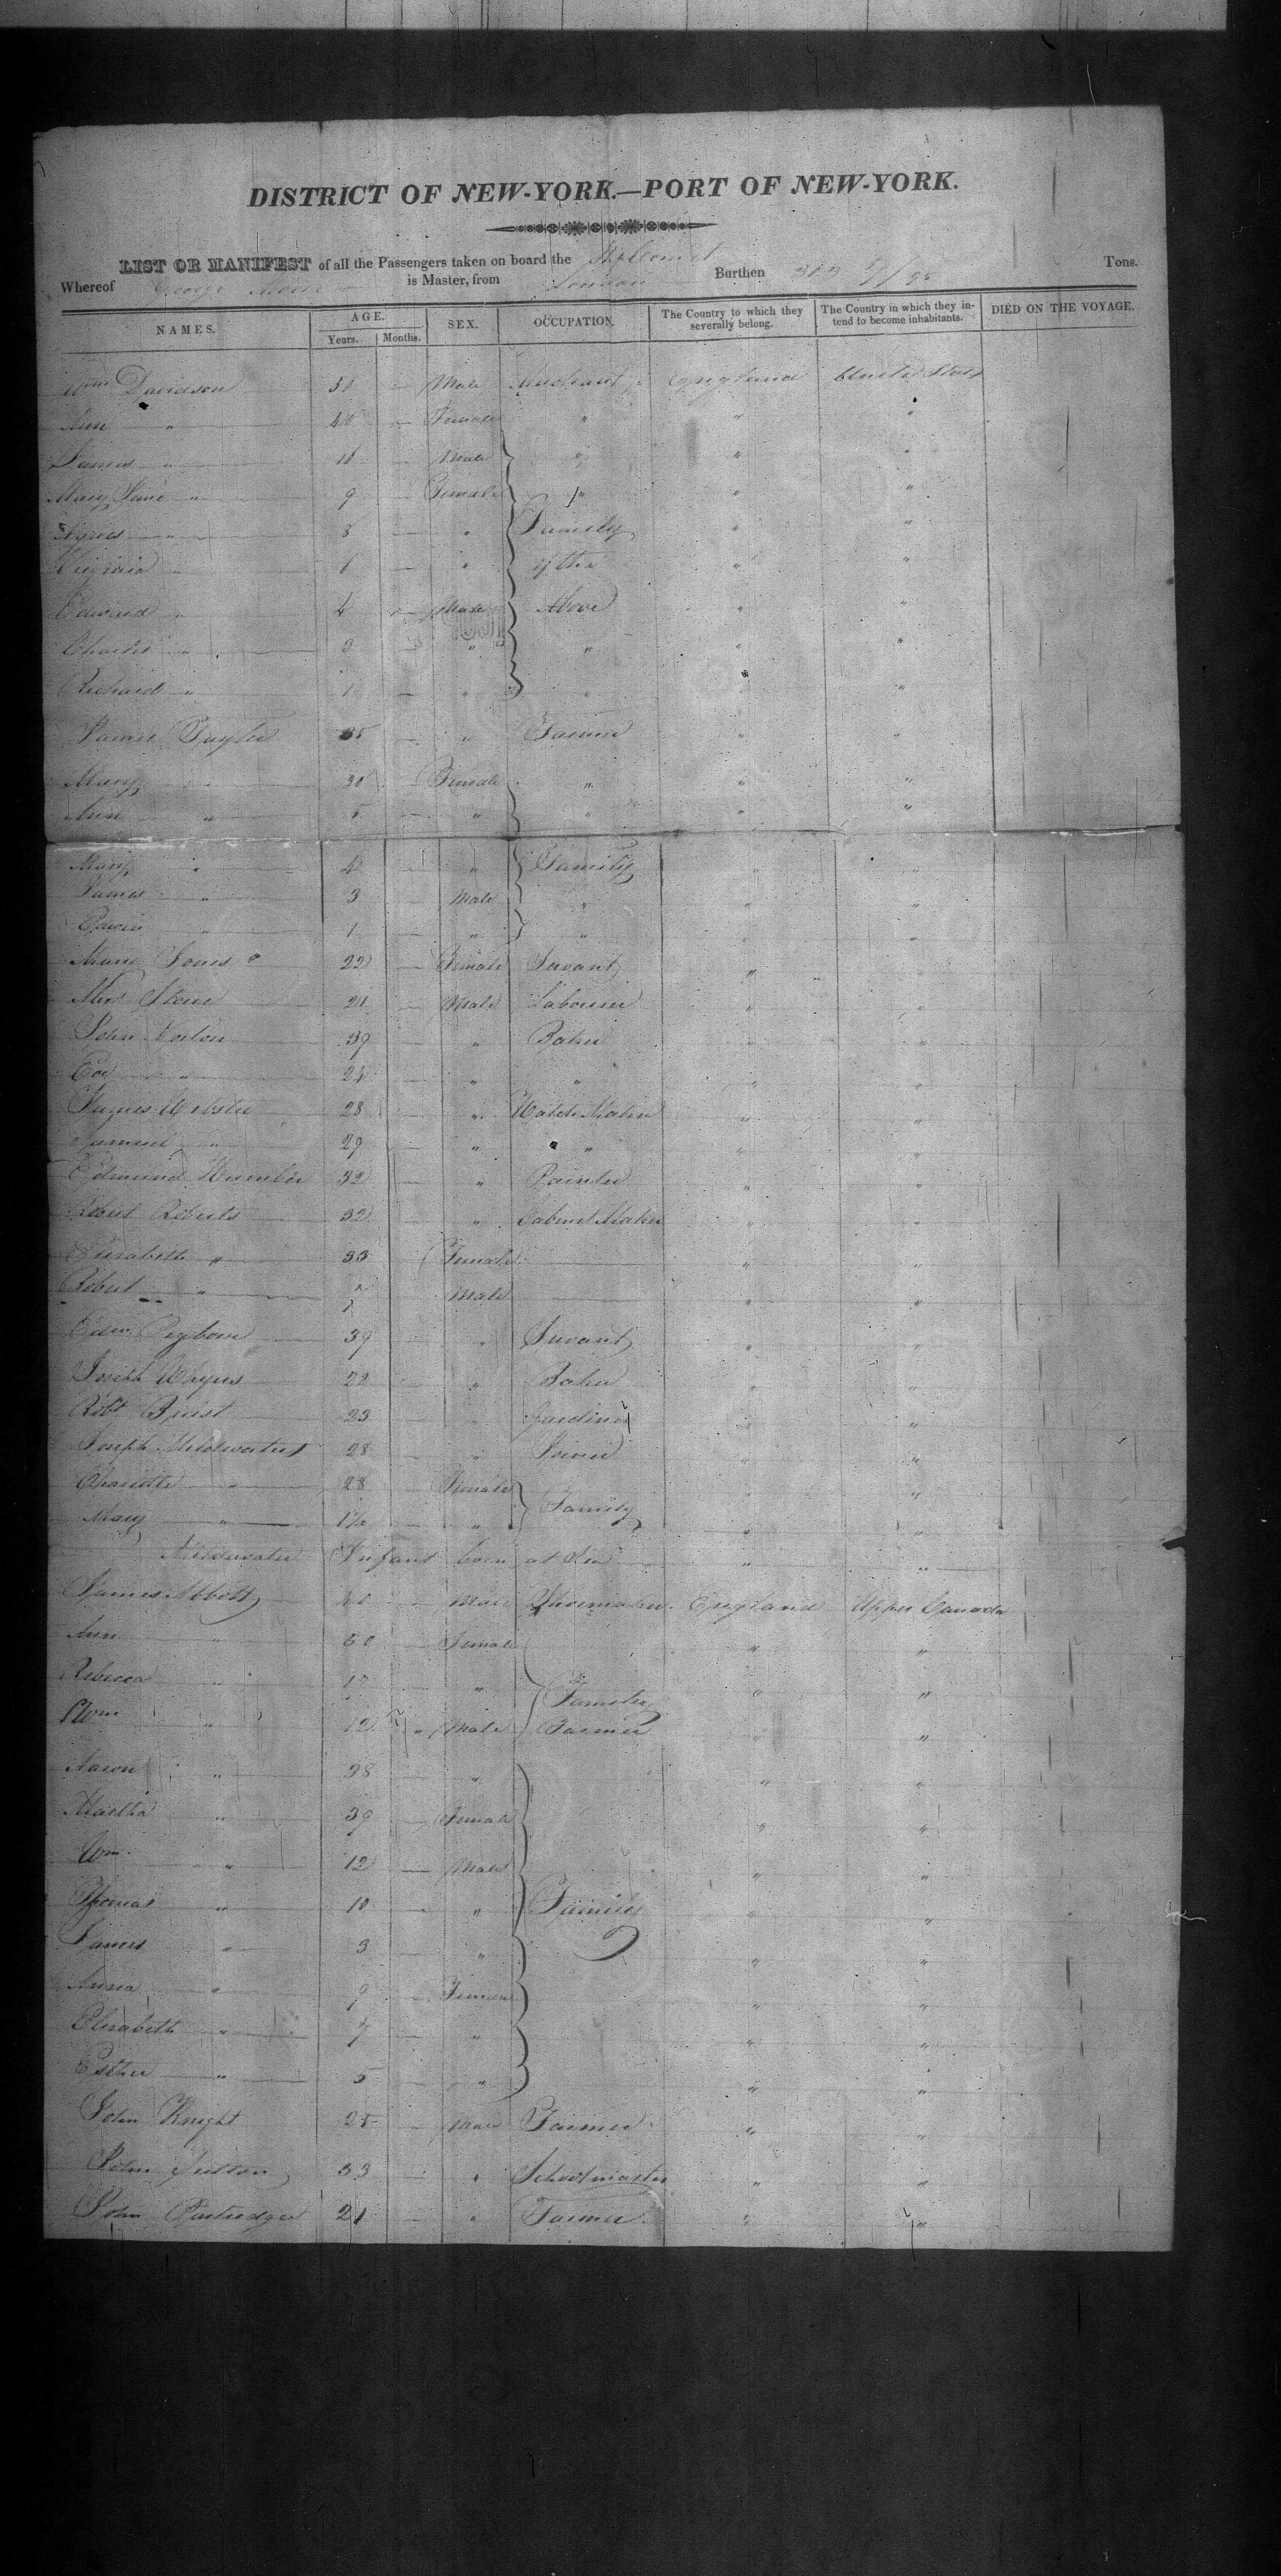 DISTRICT OF NEW-YORK.—PORT OF NEW-YORK.
LIST OR MANIFEST of all the Passengers taken on board the Ship Comet
Whereof George Moore is Master, from London Burthen Tons.
NAMES. AGE. Years. Months. SEX. OCCUPATION. The Country to which they severally belong. The Country in which they intend to become inhabitants. DIED ON THE VOYAGE.
Wm Davidson 50 — Male Merchant England United States
Ann " 40 — Female " " "
James " 10 — Male " " "
Mary Jane " 9 — Female " " "
Agnes " 8 — " Family " "
Virginia " 6 — " of the " "
Edward " 4 — Male Above " "
Charles " 3 " " " "
Richard " 1 — " " " "
James Taylor 35 — " Farmer " "
Mary 30 — Female " " "
Ann " 5 — " " " "
Mary " 4 — " Family " "
James " 3 Male " " "
Edwin " 1 — " " " "
Jones 22 — Female Servant " "
Alexr Stone 21 — Male Labourer " "
John 39 " Baker " "
" 24 — " " " "
James Webster 28 " Watch Maker " "
Samuel " 29 " " " "
Edmund 32 — " Painter " "
Robert Roberts 32 " Cabinet Maker " "
Elizabeth " 33 Female — " "
Robert " Male — " "
Edwn 39 " Servant " "
Joseph 22 " Baker " "
Robt Buist 23 " Gardiner " "
Joseph 28 " Joiner " "
Charlotte " 28 Female Family " "
Mary " 1½ " " "
Infant born at Sea " "
James Abbott — Male Shoemaker England Upper Canada
Ann " 50 — Female " "
Rebecca " 17 — " Family " "
Wm " " Male Farmer " "
Aaron " 38 — " " "
Martha " 39 — Female " "
Wm " 12 — Male " "
Thomas " 10 — " Family " "
James " 3 — " " "
Anna " 9 — Female " "
Elizabeth " 7 — " " "
Esther " 5 — " " "
John Knight 25 — Male Farmer " "
John 33 — " Schoolmaster " "
John Partridge 21 — " Farmer " "